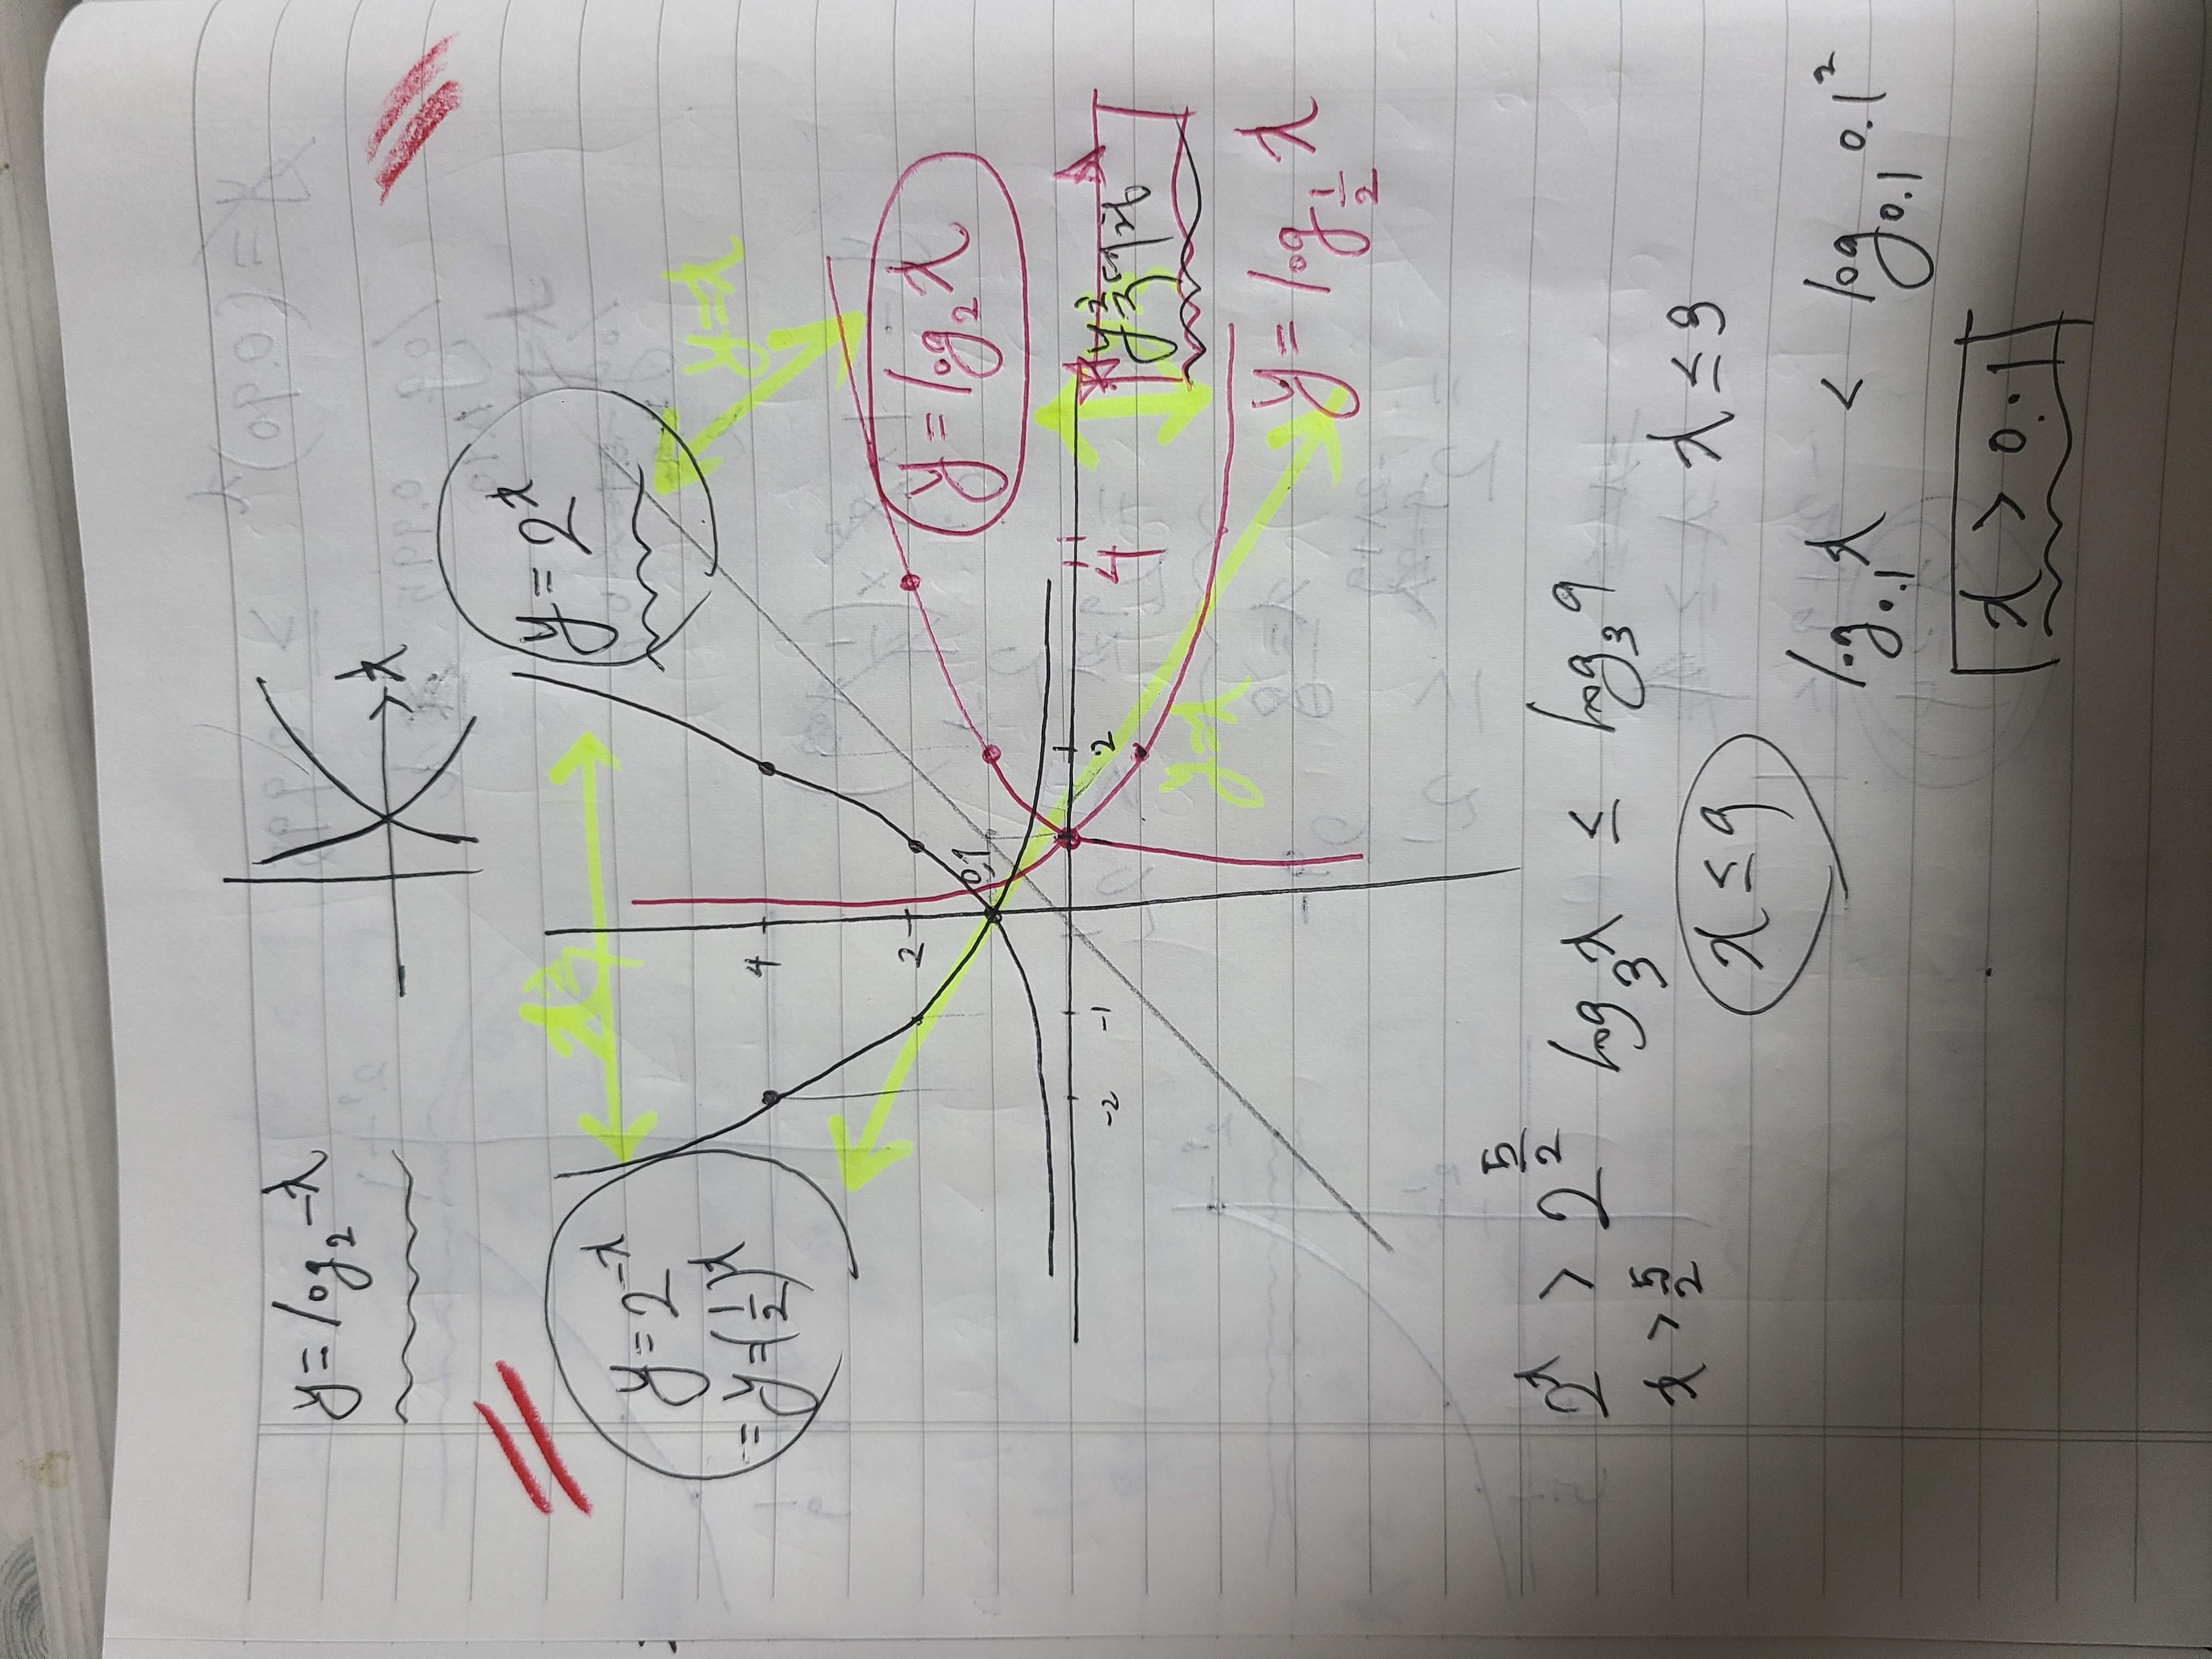 y = log₂ -x
x
y = 2ˣ
y = 2⁻ˣ
= y = (1/2)ˣ
y = x
4
2
0.1
y = log₂ x
-2 -1 1 2 4
y = x
y = log_{1/2} x
2ˣ > 2^{5/2}
x > 5/2
log₃ x ≤ log₃ 9
x ≤ 9
x ≤ 9
log_{0.1} x < log_{0.1} 0.1²
x > 0.1